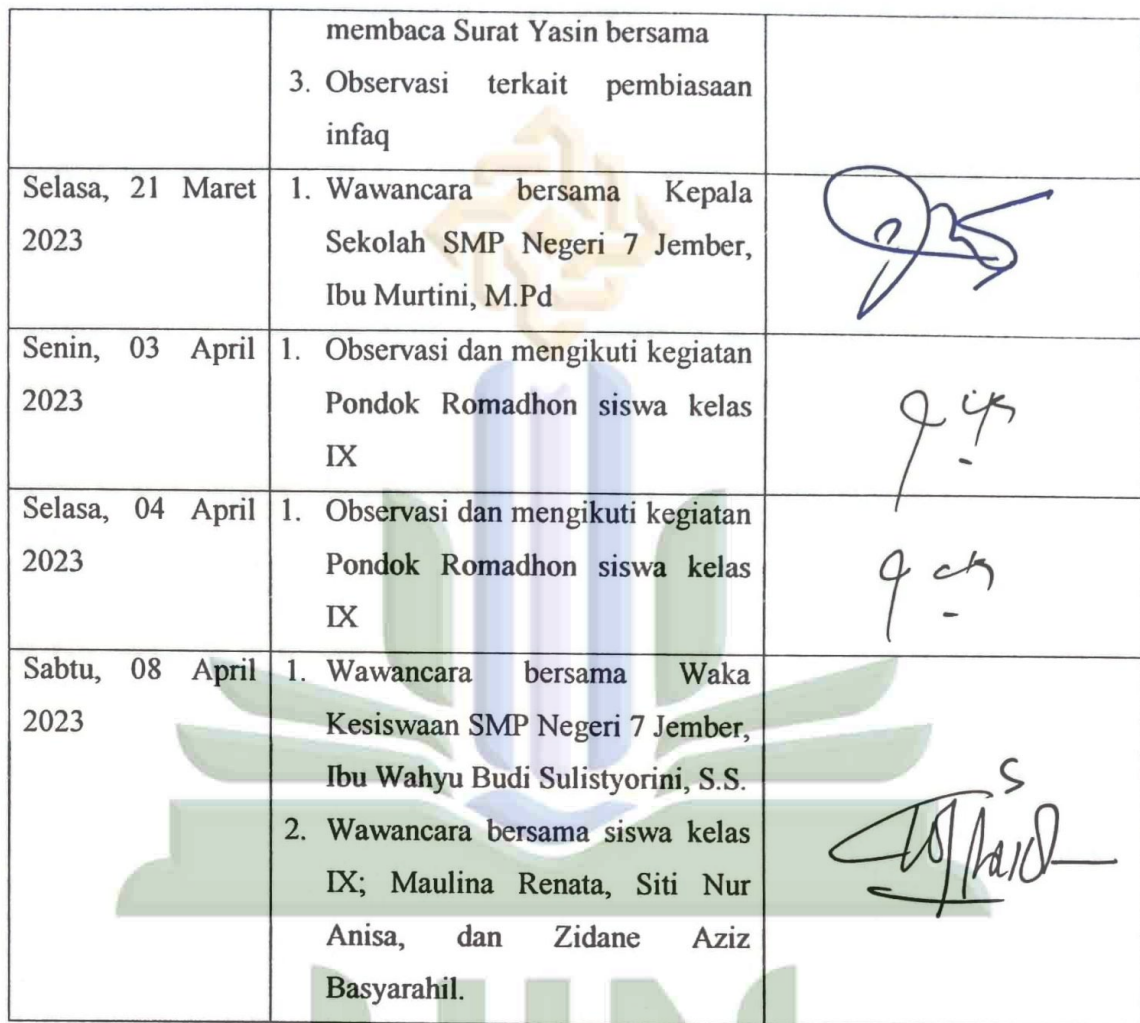 membaca Surat Yasin bersama
3. Observasi terkait pembiasaan
infaq
Selasa, 21 Maret
2023
1. Wawancara bersama Kepala
Sekolah SMP Negeri 7 Jember,
Ibu Murtini, M.Pd
Senin, 03 April
2023
1. Observasi dan mengikuti kegiatan
Pondok Romadhon siswa kelas
IX
Selasa, 04 April
2023
1. Observasi dan mengikuti kegiatan
Pondok Romadhon siswa kelas
IX
Sabtu, 08 April
2023
1. Wawancara bersama Waka
Kesiswaan SMP Negeri 7 Jember,
Ibu Wahyu Budi Sulistyorini, S.S.
2. Wawancara bersama siswa kelas
IX; Maulina Renata, Siti Nur
Anisa, dan Zidane Aziz
Basyarahil.